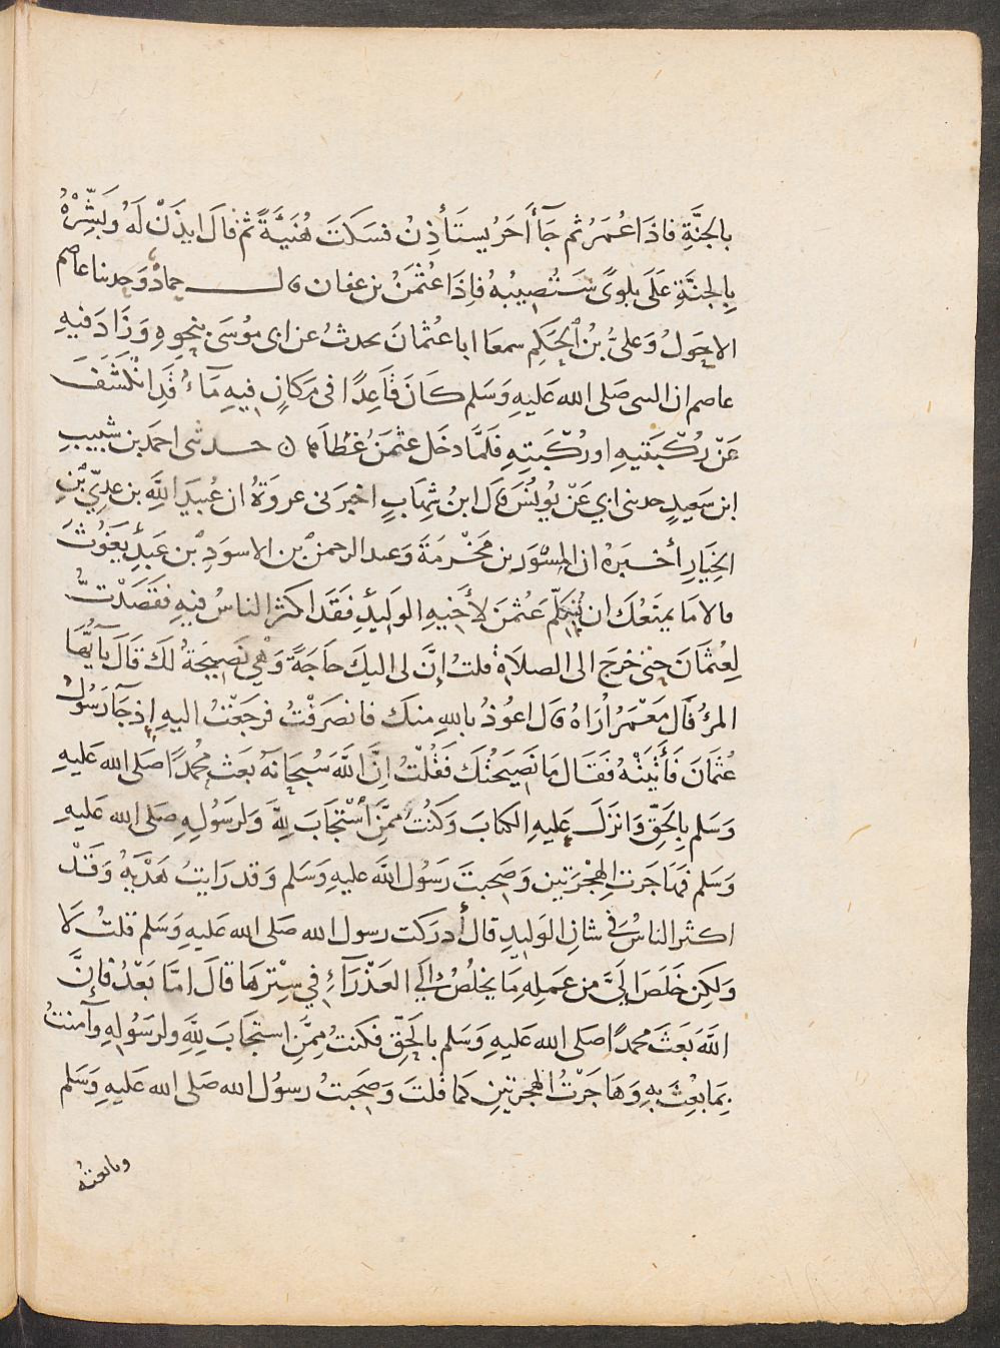 بالجنَّةِ فاذَا عُمَرُ ثم جَآءَ اَخَرُ يستَأذِنُ فسَكَتَ هُنَيَّةً ثم قالَ ايذَنْ لَهُ وَبَشِّرْهُ
بِالجنَّةِ عَلَى بلوىً سَتُصِيبُهُ فَاِذَا عُثمَنُ بن عفان قال حمادٌ وَحدثنا عاصم
الاحوَلُ وَعَلىُّ بنُ الحَكَمِ سمعا ابا عُثمانَ يحدثُ عن ابى مُوسَى بنحوِهِ وَزَادَ فيهِ
عاصم ان النبى صَلى الله عَليهِ وَسَلم كَانَ قَاعِدًا فى مَكانٍ فيهِ مَآءٌ قَدِ انكَشَفَ
عَنْ رُكْبَتَيهِ او رُكْبَتِهِ فَلَمَّا دخَل عثمَنُ غطَّاهَا حدثنى احمَد بن شَبيبِ
ابن سَعِيدٍ حدثنى ابي عَنْ يُونُسَ قالَ ابنُ شِهابٍ اخبَرَنى عروَةُ ان عُبيدَ اللَّهِ بن عدِيِّ بنِ
الخِيَارِ أخبَرَهُ ان المِسْوَرَ بن مَخْرمَةَ وَعبد الرحمن بن الاسوَدِ بن عَبدِ يَغُوثَ
قالا مَا يمنَعُكَ ان تُكَلِّمَ عَثمنَ لأَخيهِ الوَليدِ فَقَد اكثرَ الناسُ فيهِ فقَصَدْتُ
لِعُثمَانَ حتى خرجَ الى الصلاَةِ قلتُ إنَّ لى اليكَ حَاجَةً وَهْيَ نَصِيحَةٌ لكَ قَالَ يآ أيُّهَا
المرءُ قالَ مَعْمَرٌ اُرَاهُ قالَ اعوُذُ باللهِ منكَ فانصَرَفْتُ فرجَعْتُ اليهِ إذ جَآءَ رَسُولُ
عُثمَانَ فَأَتَيتُهُ فَقَالَ مَا نَصِيحَتُكَ فَقُلْتُ اِنَّ اللَّهَ سُبحَانهُ بعَث مُحمدًا صَلى الله عَليهِ
وَسَلم بِالحَقِّ وَانزَلَ عَليهِ الكتابَ وَكنتُ ممَّنْ اسْتَجَابَ لِلَّهِ وَلرَسُولِهِ صَلى الله عَليهِ
وَسَلم فهَاجَرتَ الهِجْرَتَين وَصَحبتَ رَسُول اللَّه عليهِ وسَلم وَقد رَايتَ هَدْيَهُ وَقَدْ
اكثرَ الناسُ في شانِ الوَليدِ قالَ أدرَكتَ رسول الله صَلى الله عَليهِ وَسَلم قلتُ لاَ
وَلكِن خَلَصَ اِلَيَّ من عَملِهِ مَا يخلُصُ إلَى العَذْرَآءِ في سِتْرِهَا قَالَ امَّا بَعْدُ فإِنَّ
اللَّهَ بَعَثَ محمدًا صَلى الله عَليهِ وَسَلم بالحَقِّ فكنتُ مِمَّنِ استجَابَ لِلَّهِ ولرَسُولِهِ وآمنتُ
بِمَا بعُِثَ بهِ وَهَاجَرْتُ الهِجرَتينِ كما قُلتَ وَصَحِبتُ رسوُل الله صَلى الله عَليهِ وَسَلم
وبايعتُه